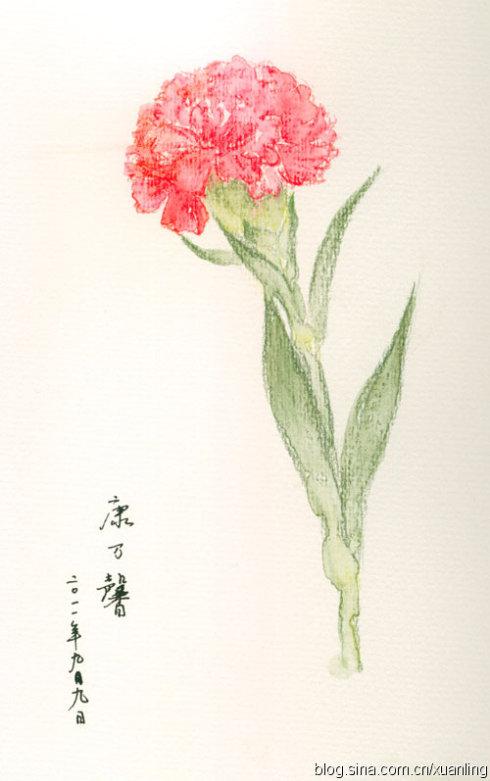 康乃馨
二〇一一年九月九日
blog.sina.com.cn/xuanling